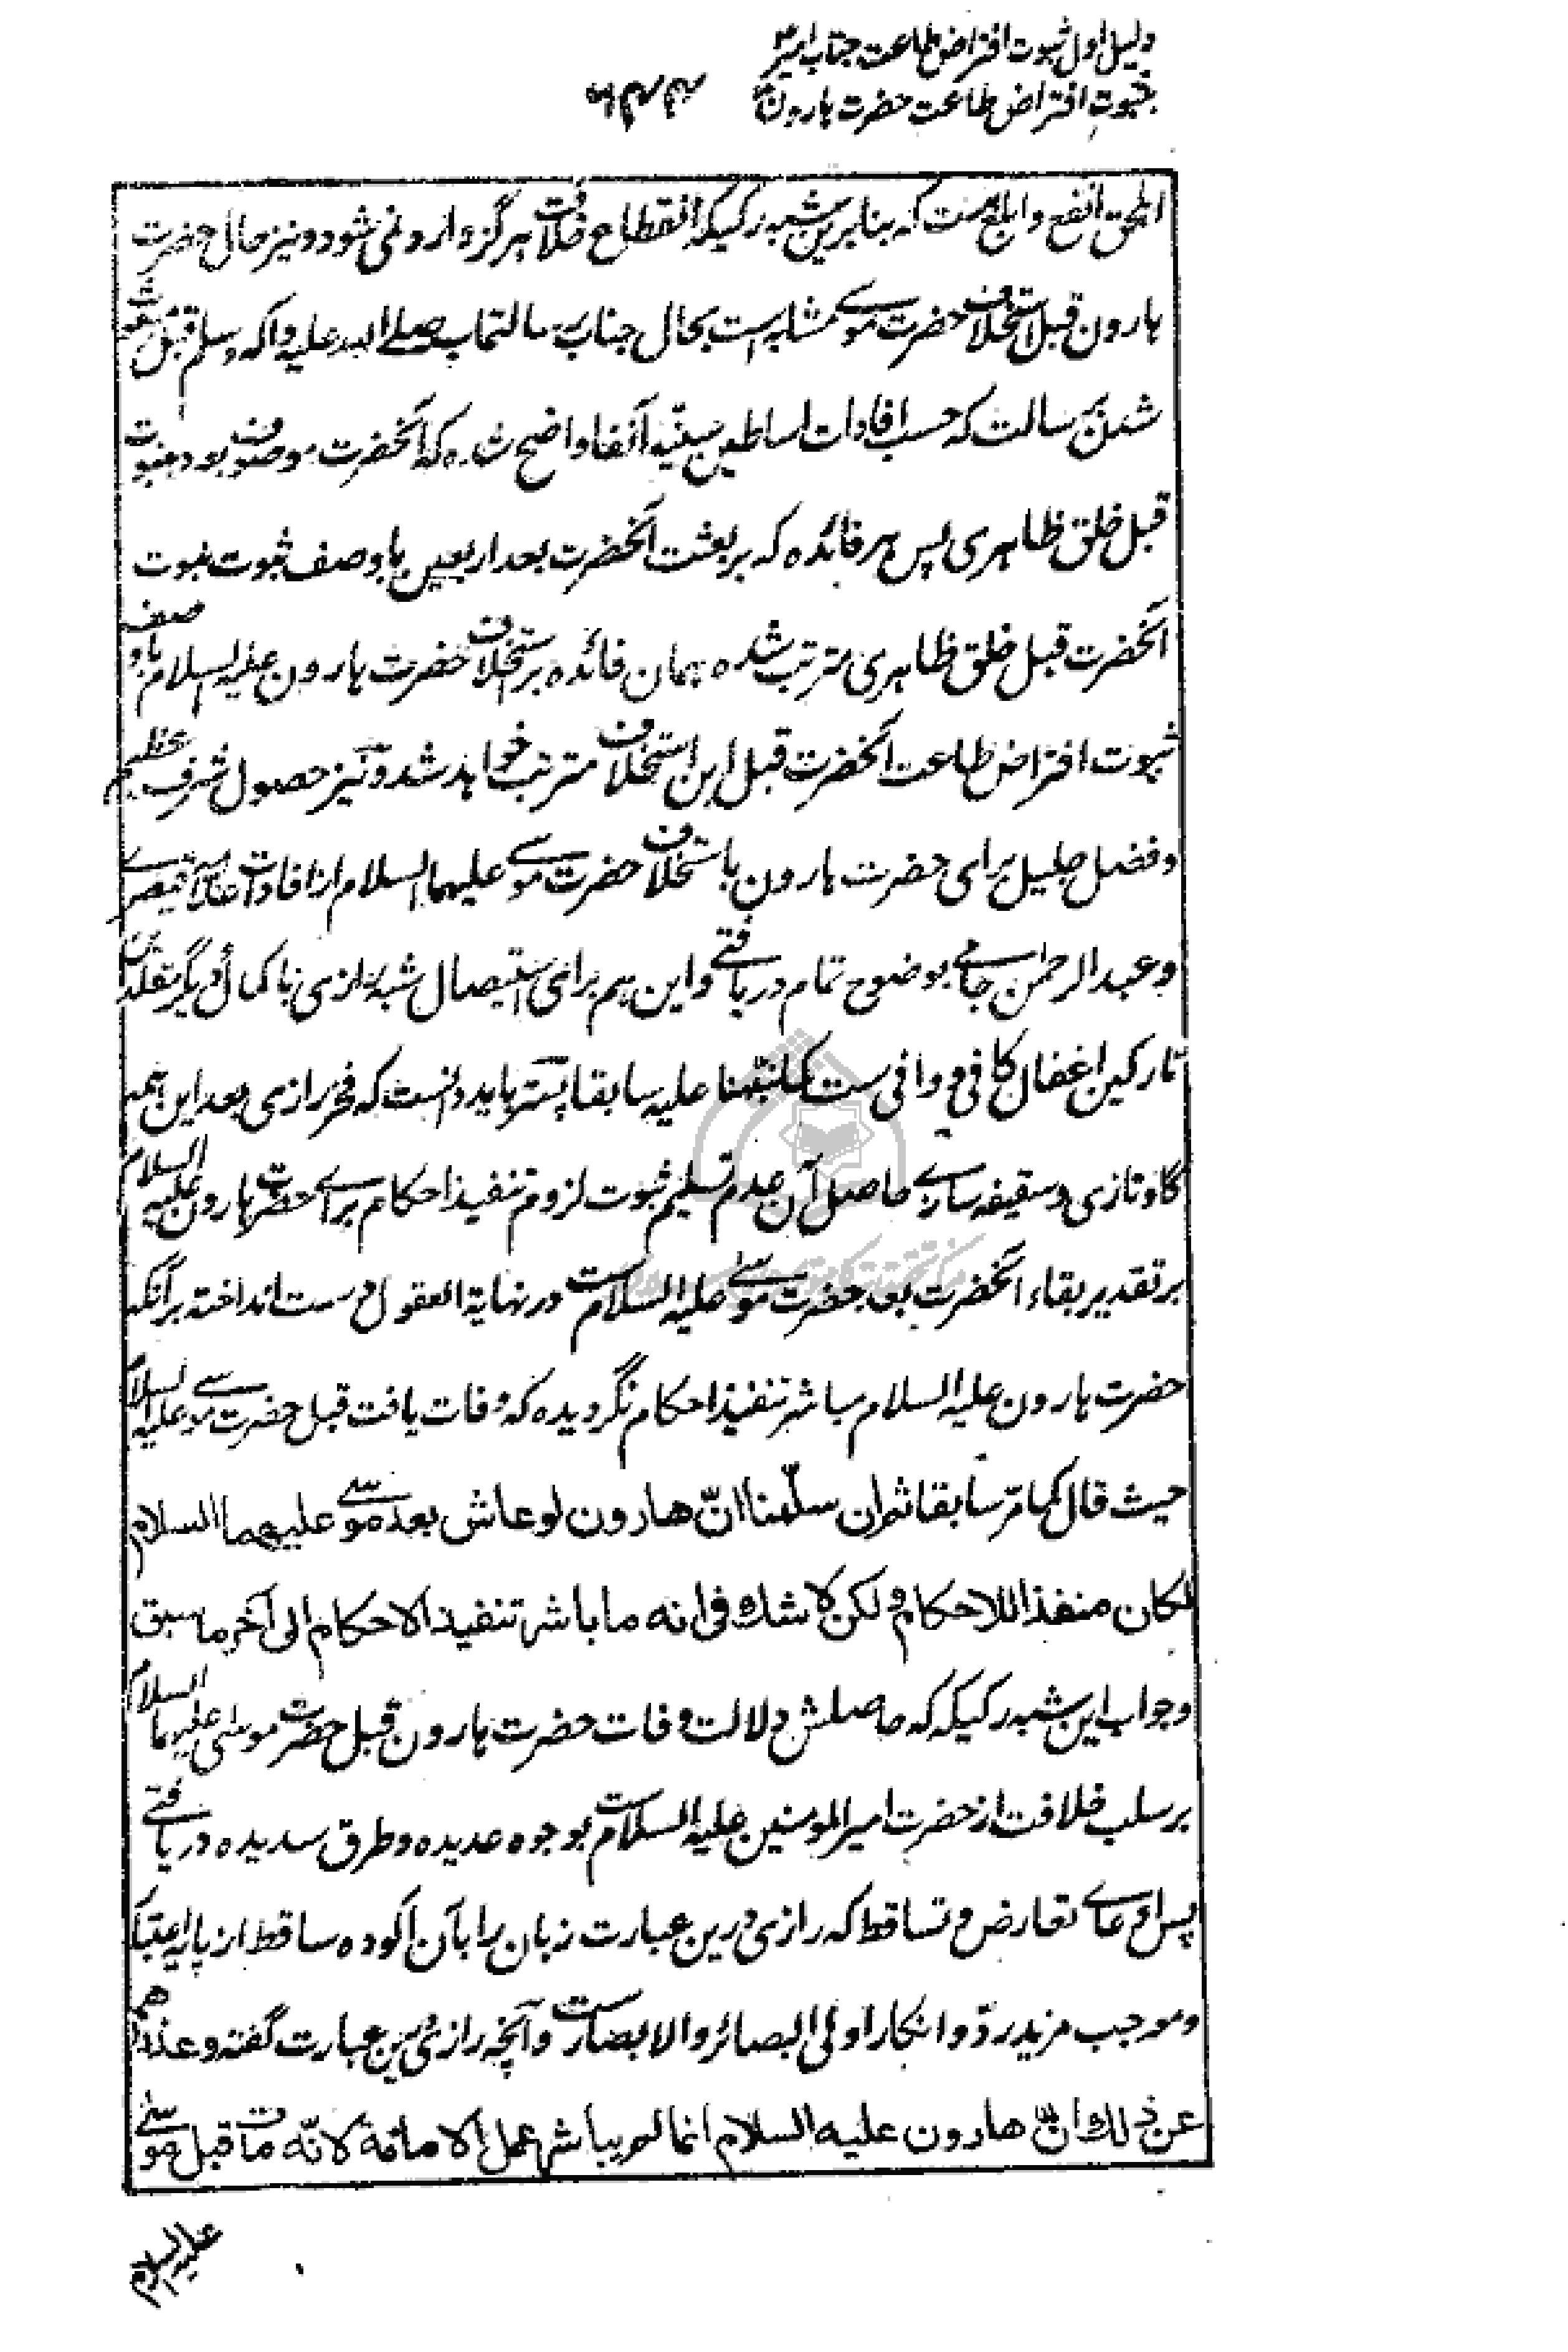 دلیل اول ثبوت افتراض طاعت جناب امیرؑ
بثبوت افتراض طاعت حضرت هارونؑ
الحق انفع و ابلغ ست که بنا برین شبهه رکیکه انقطاع خلافت هرگز وارد نمی شود و نیز حال حضرت
هارون قبل استخلاف حضرت موسے مشابه است بحال جناب رسالتمآب صلے الله علیه و آله و سلم قبل
شدن رسالت که حسب افادات اساطین سنّیه آنفا واضح شده که آنحضرت موصوف بود بنبوت
قبل خلق ظاهری پس هر فائده که بر بعثت آنحضرت بعد اربعین با وصف ثبوت نبوت
آنحضرت قبل خلق ظاهری مترتب شده همان فائده بر استخلاف حضرت هارون علیه السلام باوصف
ثبوت افتراض طاعت آنحضرت قبل این استخلاف مترتب خواهد شد و نیز حصول شرف عظیم
و فضل جلیل برای حضرت هارون باستخلاف حضرت موسے علیهما السلام از افادات علامه قیصرے
و عبدالرحمن جامے بوضوح تمام دریافتے و این هم برای استیصال شبهه رازی با کمال دیگر مقلدین
تارکین اغفال کافی و وافی ست کما نبّهنا علیه سابقا پستر باید دانست که فخر رازی بعد این همه
گاوتازی و سقیفه سازے حاصل آن عدم تسلیم ثبوت لزوم تنفیذ احکام براے حضرت هارون علیه السلام
بر تقدیر بقاء آنحضرت بعد حضرت موسے علیه السلام ست در نهایة العقول دست انداخته بر آنکه
حضرت هارون علیه السلام مباشر تنفیذ احکام نگردیده که وفات یافت قبل حضرت موسے علیه السلام
حیث قال کما مرّ سابقا ثم ان سلّمنا انّ هارون لو عاش بعد موسے علیهما السلام
لکان منفذا للاحکام و لکن لا شك فی انه ما باشر تنفیذ الاحکام الی آخر ما سبق
و جواب این شبهه رکیکه که حاصلش دلالت وفات حضرت هارون قبل حضرت موسی علیهما السلام
بر سلب خلافت از حضرت امیر المومنین علیه السلام ست بوجوه عدیده و طرق سدیده دریافتے
پس ادعاے تعارض و تساقط که رازی درین عبارت زبان را بآن آلوده ساقط از پایه اعتبار
و موجب مزید ردّ و انکار اولی البصائر و الابصار ست و آنچه رازی درین عبارت گفته و عذرهم
عن ذلك انّ هارون علیه السلام انما لم یباشر عمل الامامة لانّه مات قبل موسے
علیه السلام